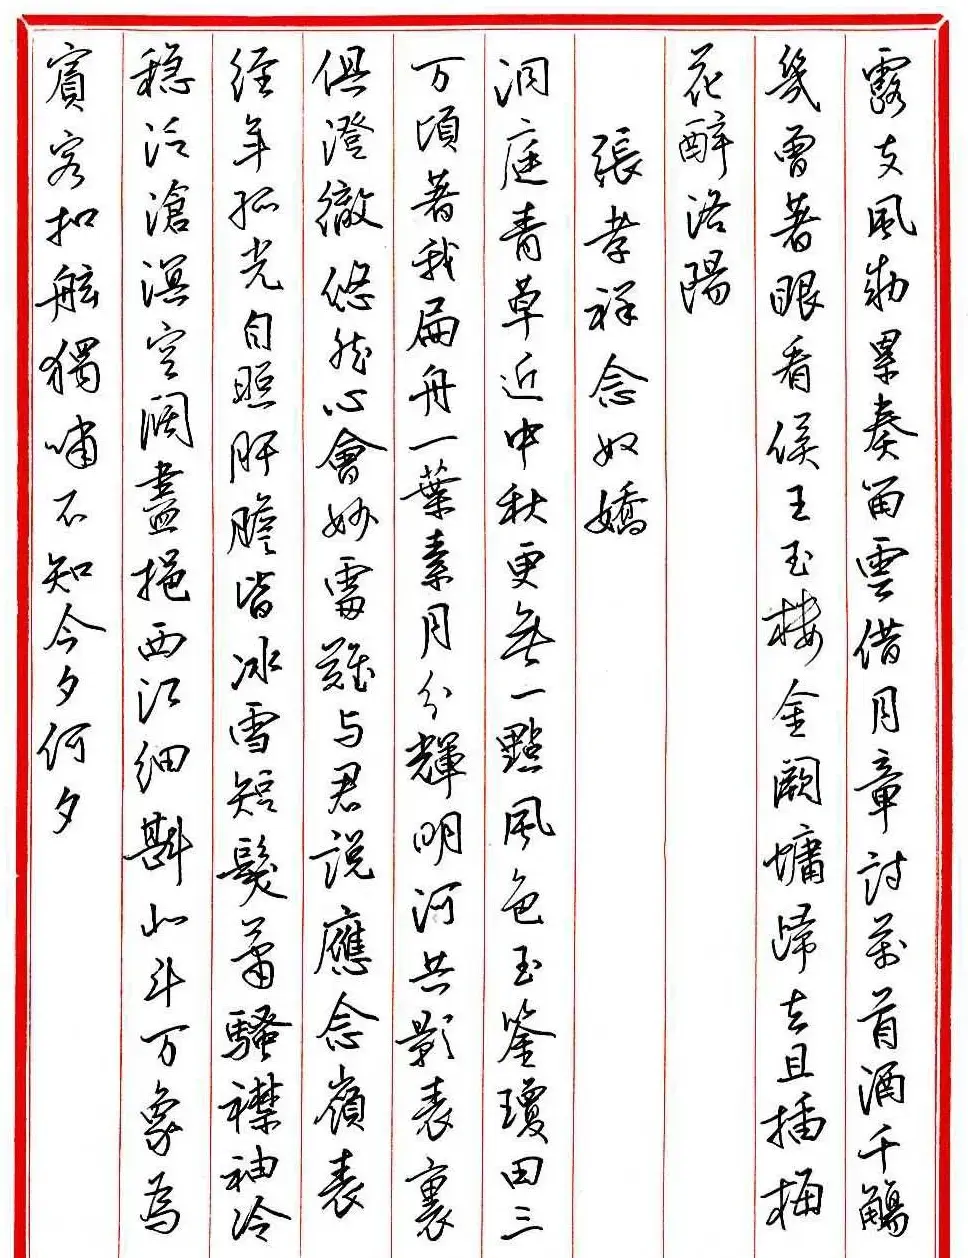 露支風勑累奏留雲借月章詩萬首酒千觴
幾曾著眼看侯王玉樓金闕慵歸去且插梅
花醉洛陽
張孝祥念奴嬌
洞庭青草近中秋更無一點風色玉鉴瓊田三
万頃著我扁舟一葉素月分輝明河共影表裏
俱澄徹悠然心會妙處難与君説應念嶺表
经年孤光自照肝膽皆冰雪短鬓蕭騷襟袖冷
稳泛滄溟空阔盡挹西江细斟北斗万象為
賓客扣舷獨嘯不知今夕何夕